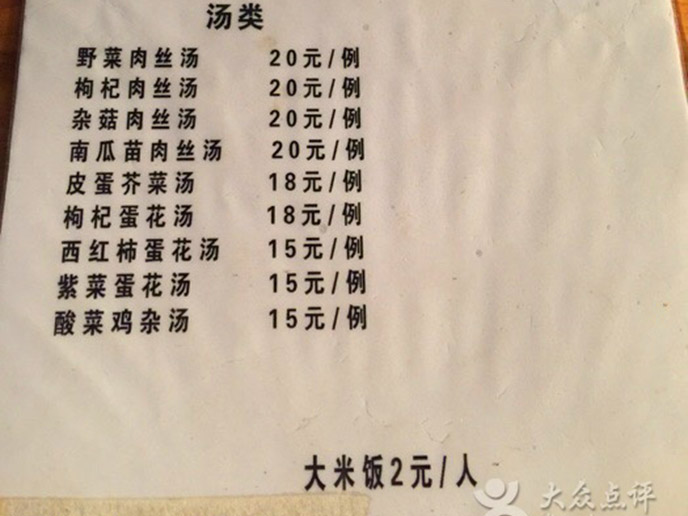 汤类
野菜肉丝汤 20元/例
枸杞肉丝汤 20元/例
杂菇肉丝汤 20元/例
南瓜苗肉丝汤 20元/例
皮蛋芥菜汤 18元/例
枸杞蛋花汤 18元/例
西红柿蛋花汤 15元/例
紫菜蛋花汤 15元/例
酸菜鸡杂汤 15元/例
大米饭2元/人
大众点评